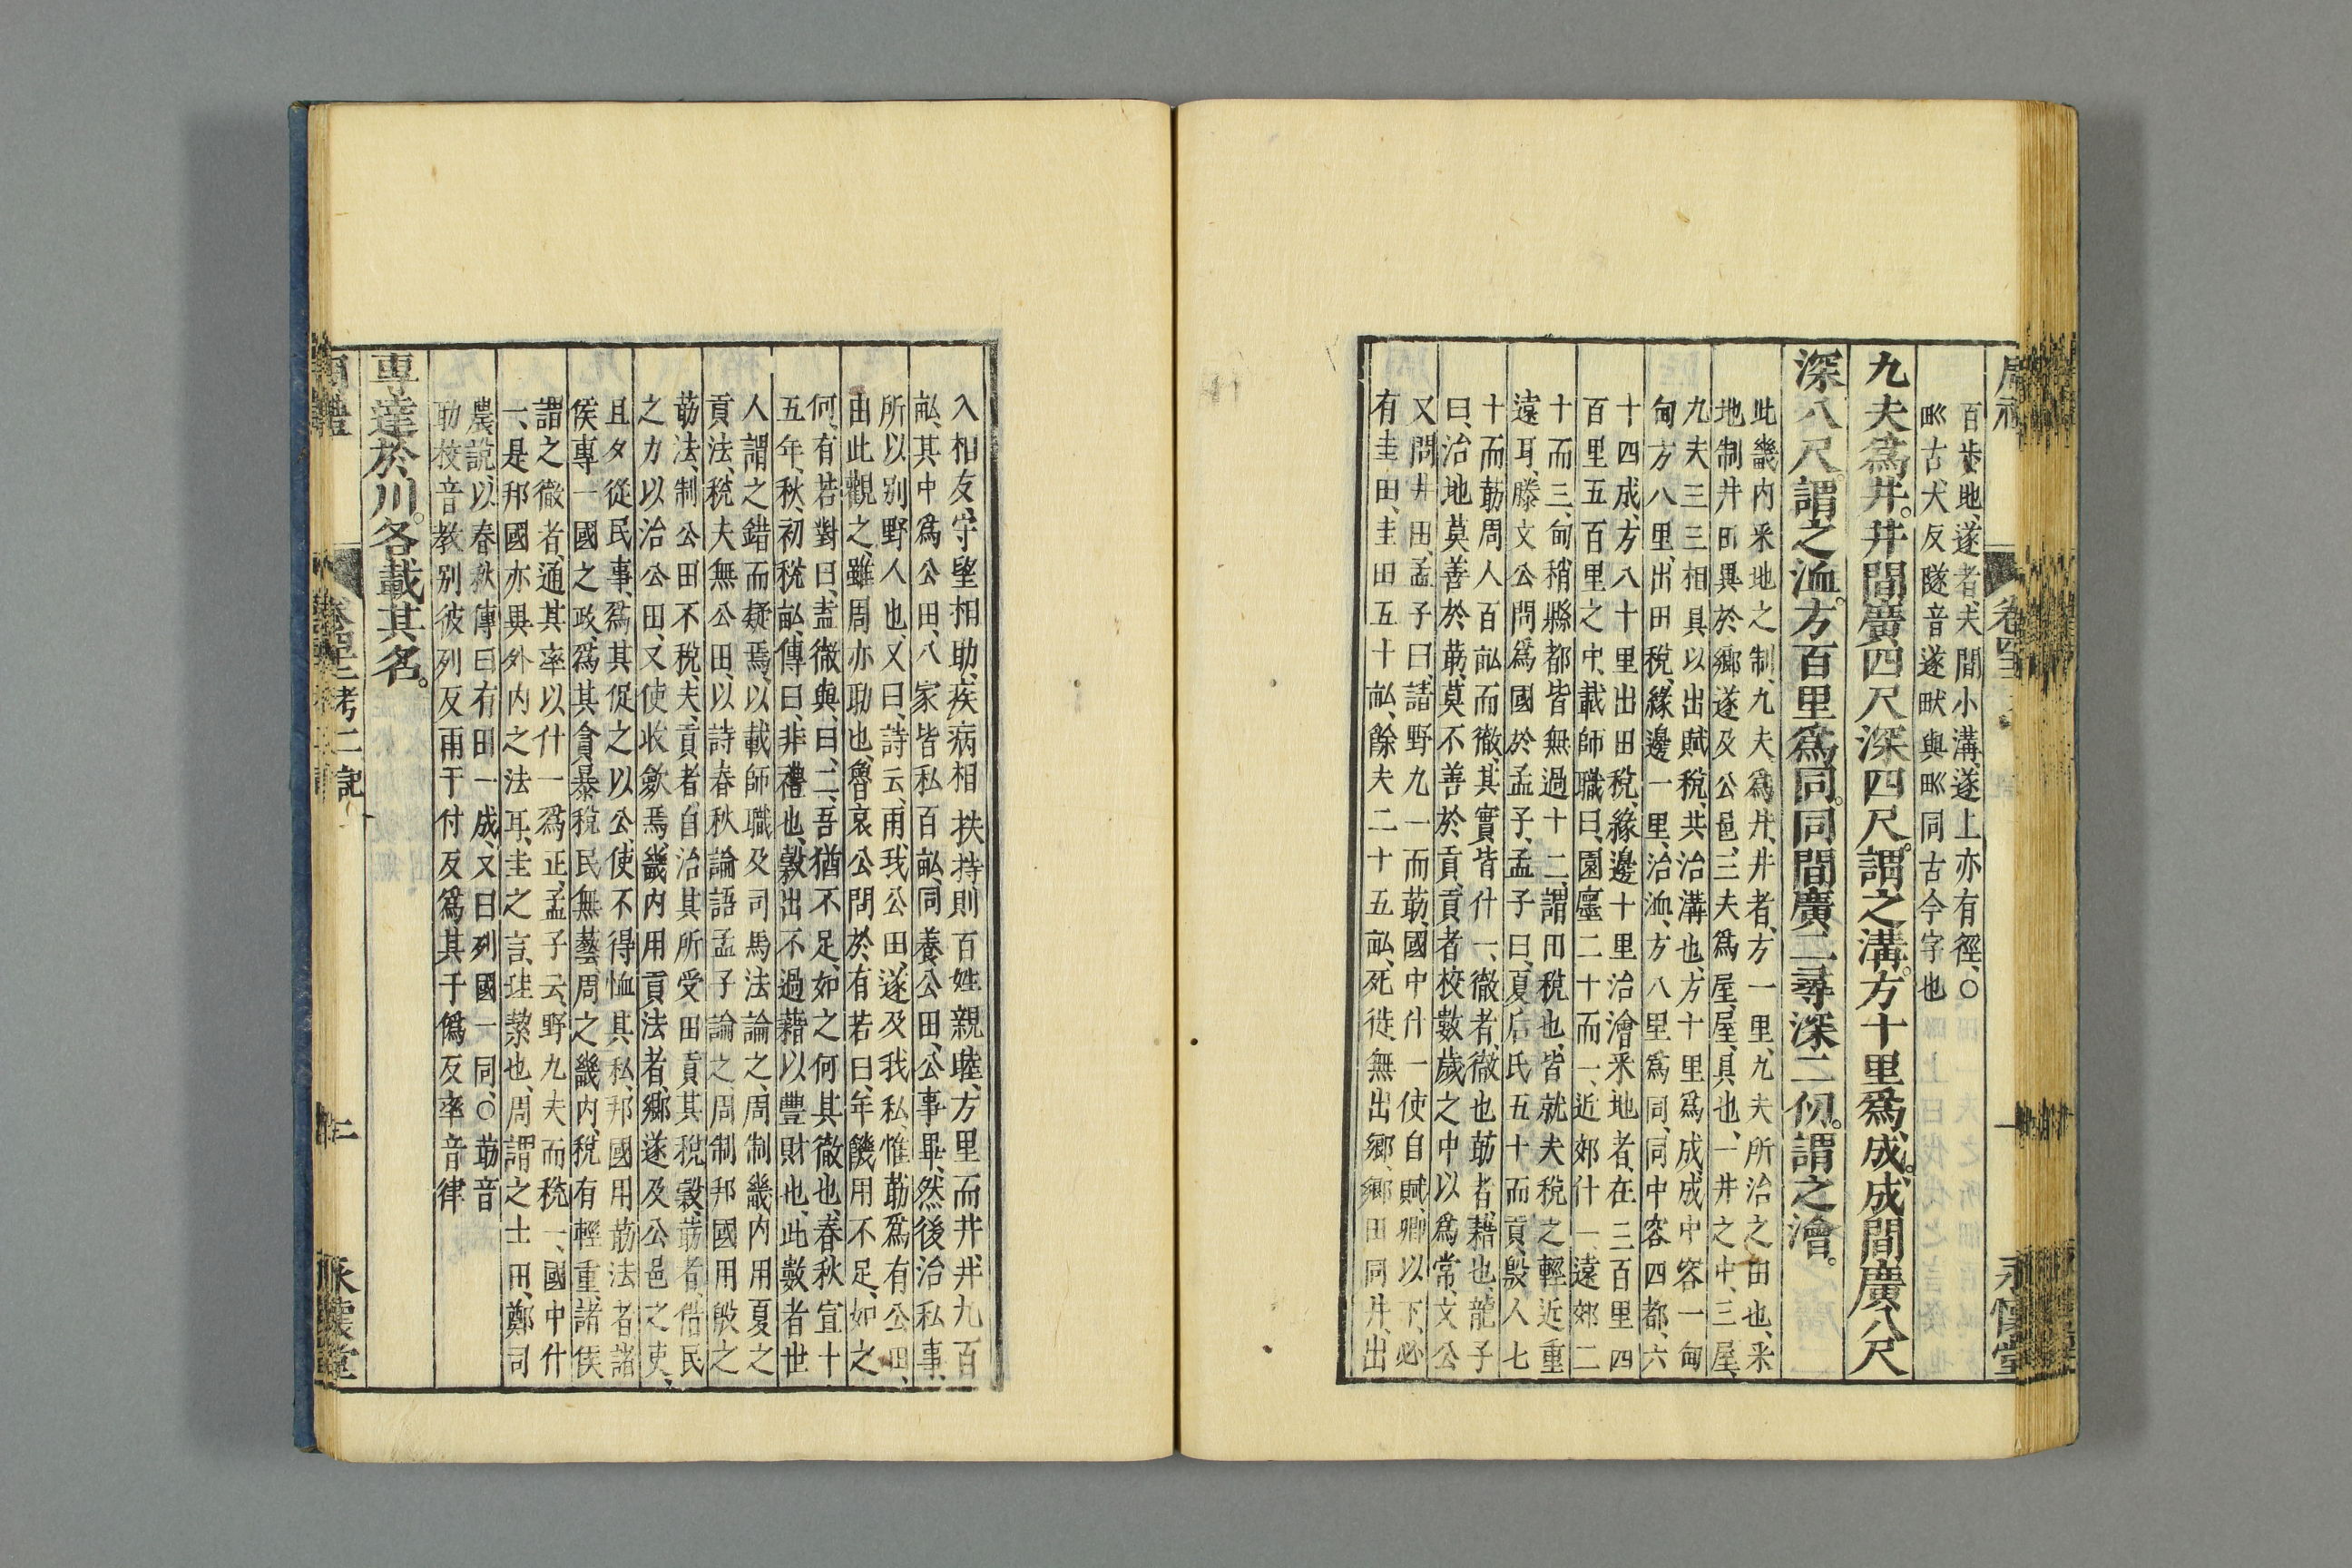 百步地、遂者、夫間小溝、遂上亦有徑、○
𤰝古、犬反隧音遂畎與𤰝同古今字也
九夫爲井。井間廣四尺深四尺。謂之溝。方十里爲成。成間廣八尺
深八尺。謂之洫。方百里爲同。同間廣二尋深二仞。謂之澮。
此畿内采地之制、九夫爲井、井者、方一里、九夫所治之田也、采
地制井田異於鄉遂及公邑、三夫爲屋、屋、具也、一井之中、三屋、
九夫三三相具以出賦稅、共治溝也、方十里爲成、成中容一甸
甸方八里、出田稅、緣邊一里、治洫、方八里爲同、同中容四都、六
十四成、方八十里出田稅、緣邊十里治澮采地者、在三百里四
百里五百里之中、載師職曰、園廛二十而一、近郊什一、遠郊二
十而三、甸、稍縣都皆無過十二、謂田稅也、皆就夫稅之輕近重
遠耳、滕文公問爲國於孟子、孟子曰、夏后氏五十而貢、殷人七
十而莇周人百畝而徹、其實皆什一、徹者、徹也莇者、藉也、龍子
曰、治地莫善於莇、莫不善於貢、貢者校數歲之中以爲常、文公
又問井田、孟子曰、請野九一而莇、國中什一使自賦、卿以下、必
有圭田、圭田五十畝、餘夫二十五畝、死徙無出鄉、鄉田同井、出
周禮 卷四十二 一 永懷堂
入相友、守望相助、疾病相扶、持則百姓親睦、方里而井、井九百
畝、其中爲公田、八家皆私百畝、同養公田、公事畢、然後治私事、
所以別野人也、又曰、詩云、雨我公田、遂及我私、惟莇爲有公田、
由此觀之、雖周亦助也、魯哀公問於有若曰、年饑用不足、如之
何、有若對曰、盍徹與、曰、二、吾猶不足、如之何其徹也、春秋宣十
五年、秋、初稅畝、傳曰、非禮也、穀出不過藉以豐財也、此數者世
人謂之錯而疑焉、以載師職及司馬法論之、周制畿内用夏之
貢法、稅夫無公田、以詩春秋論語孟子論之、周制邦國用殷之
莇法、制公田不稅、夫、貢者、自治其所受田貢其稅穀、莇者、借民
之力以治公田、又使收斂焉、畿内用貢法者、鄉遂及公邑之吏、
且夕從民事、爲其促之以公、使不得恤其私、邦國用莇法者諸
侯專一國之政、爲其貪暴稅民無藝、周之畿内、稅有輕重、諸侯
謂之徹者、通其率以什一爲正、孟子云、野九夫而稅一、國中什
一、是邦國亦異外内之法耳、圭之言、珪絜也、周謂之士田、鄭司
農說、以春秋傳曰有田一成、又曰列國一同、○莇音
助校音教別彼列反雨于付反爲其于僞反率音律
專達於川。各載其名。